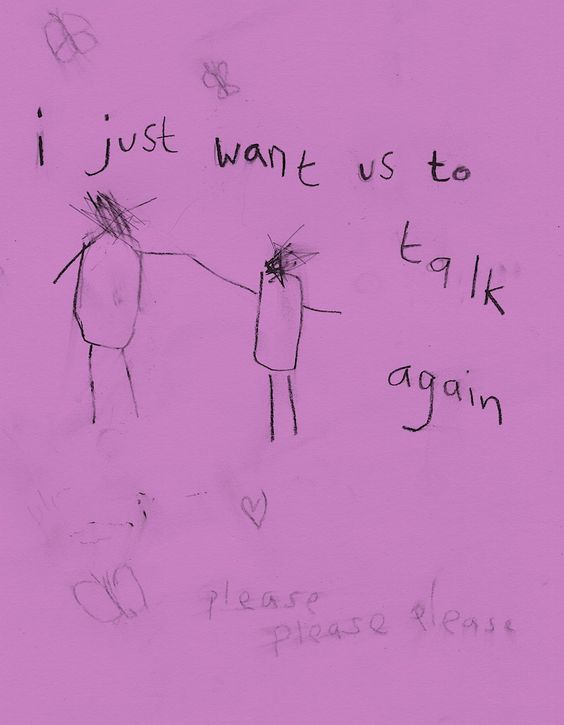 i just want us to
talk
again
please
please please